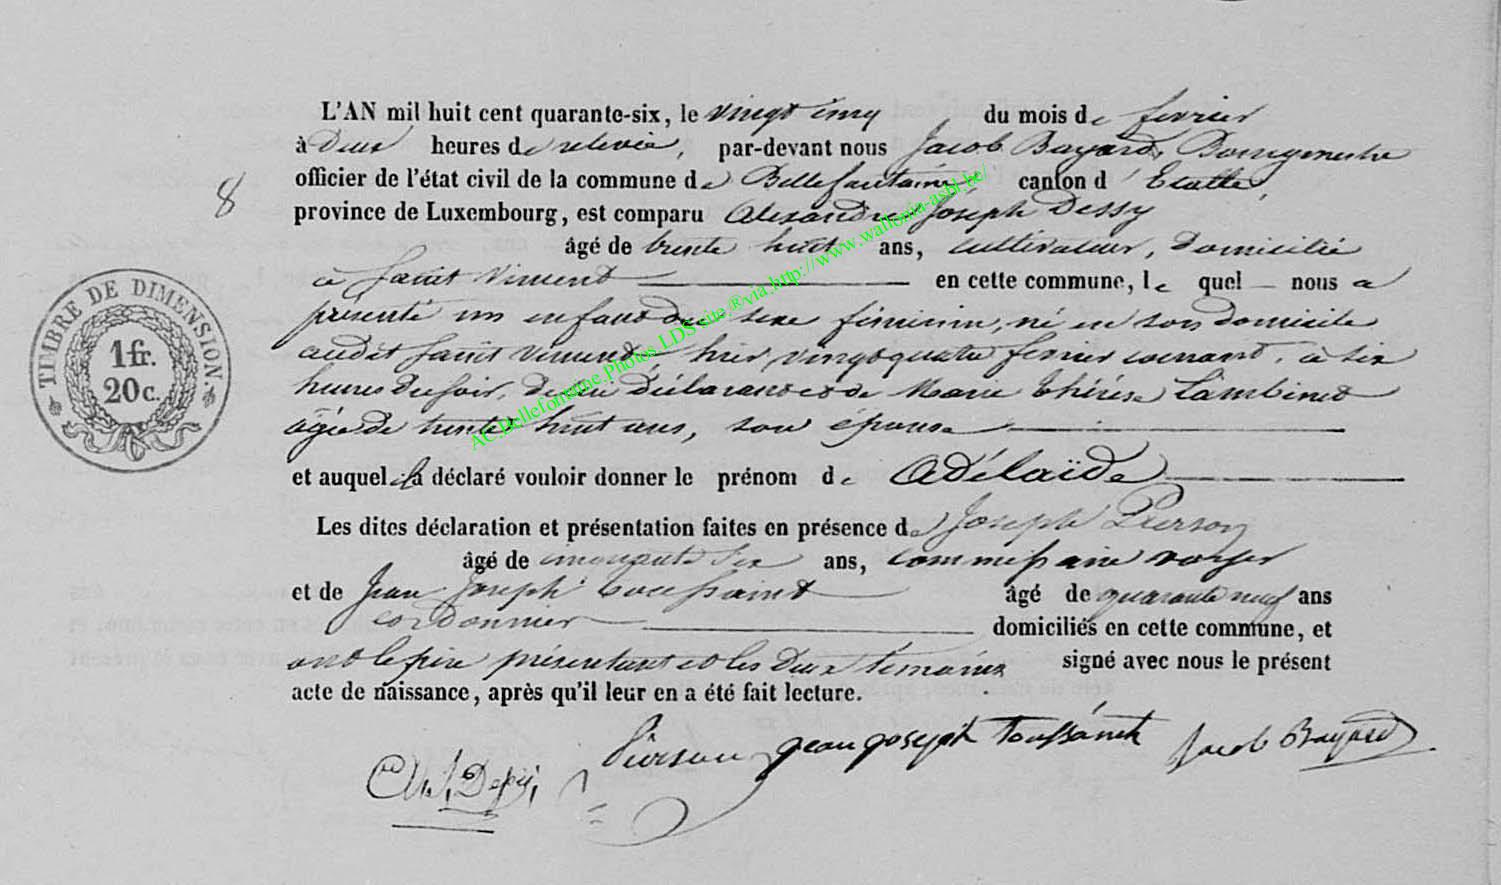 L'AN mil huit cent quarante-six, le vingt cinq du mois de fevrier
à deux heures de relevée, par-devant nous Jacob Bayard, Bourgmestre
officier de l'état civil de la commune de Bellefontaine canton d'Etalle,
8
province de Luxembourg, est comparu Alexandre Joseph Dessy
âgé de trente huit ans, cultivateur, domicilié
à Saint Vincent en cette commune, le quel nous a
présenté un enfant du sexe féminin, né en son domicile
audit Saint Vincent, hier, vingt quatre fevrier courant, à six
heures du soir, de lui déclarant et de Marie Thérèse Lambinet
âgée de trente huit ans, son épouse
et auquel il a déclaré vouloir donner le prénom de Adélaïde
Les dites déclaration et présentation faites en présence de Joseph Pierson
âgé de cinquante six ans, commissaire voyer
et de Jean Joseph Toussaint âgé de quarante neuf ans
cordonnier domiciliés en cette commune, et
ont le père présentant et les deux témoins signé avec nous le présent
acte de naissance, après qu'il leur en a été fait lecture.
Pierson jean joseph Toussaint Jacob Bayard
Dessy
TIMBRE DE DIMENSION.
1 fr.
20 c.
AC.Bellefontaine.Photos.LDS site.®via.http://www.wallonia-asbl.be/